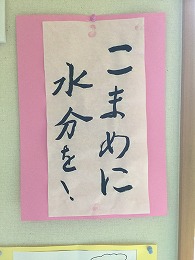 こまめに
水分を、